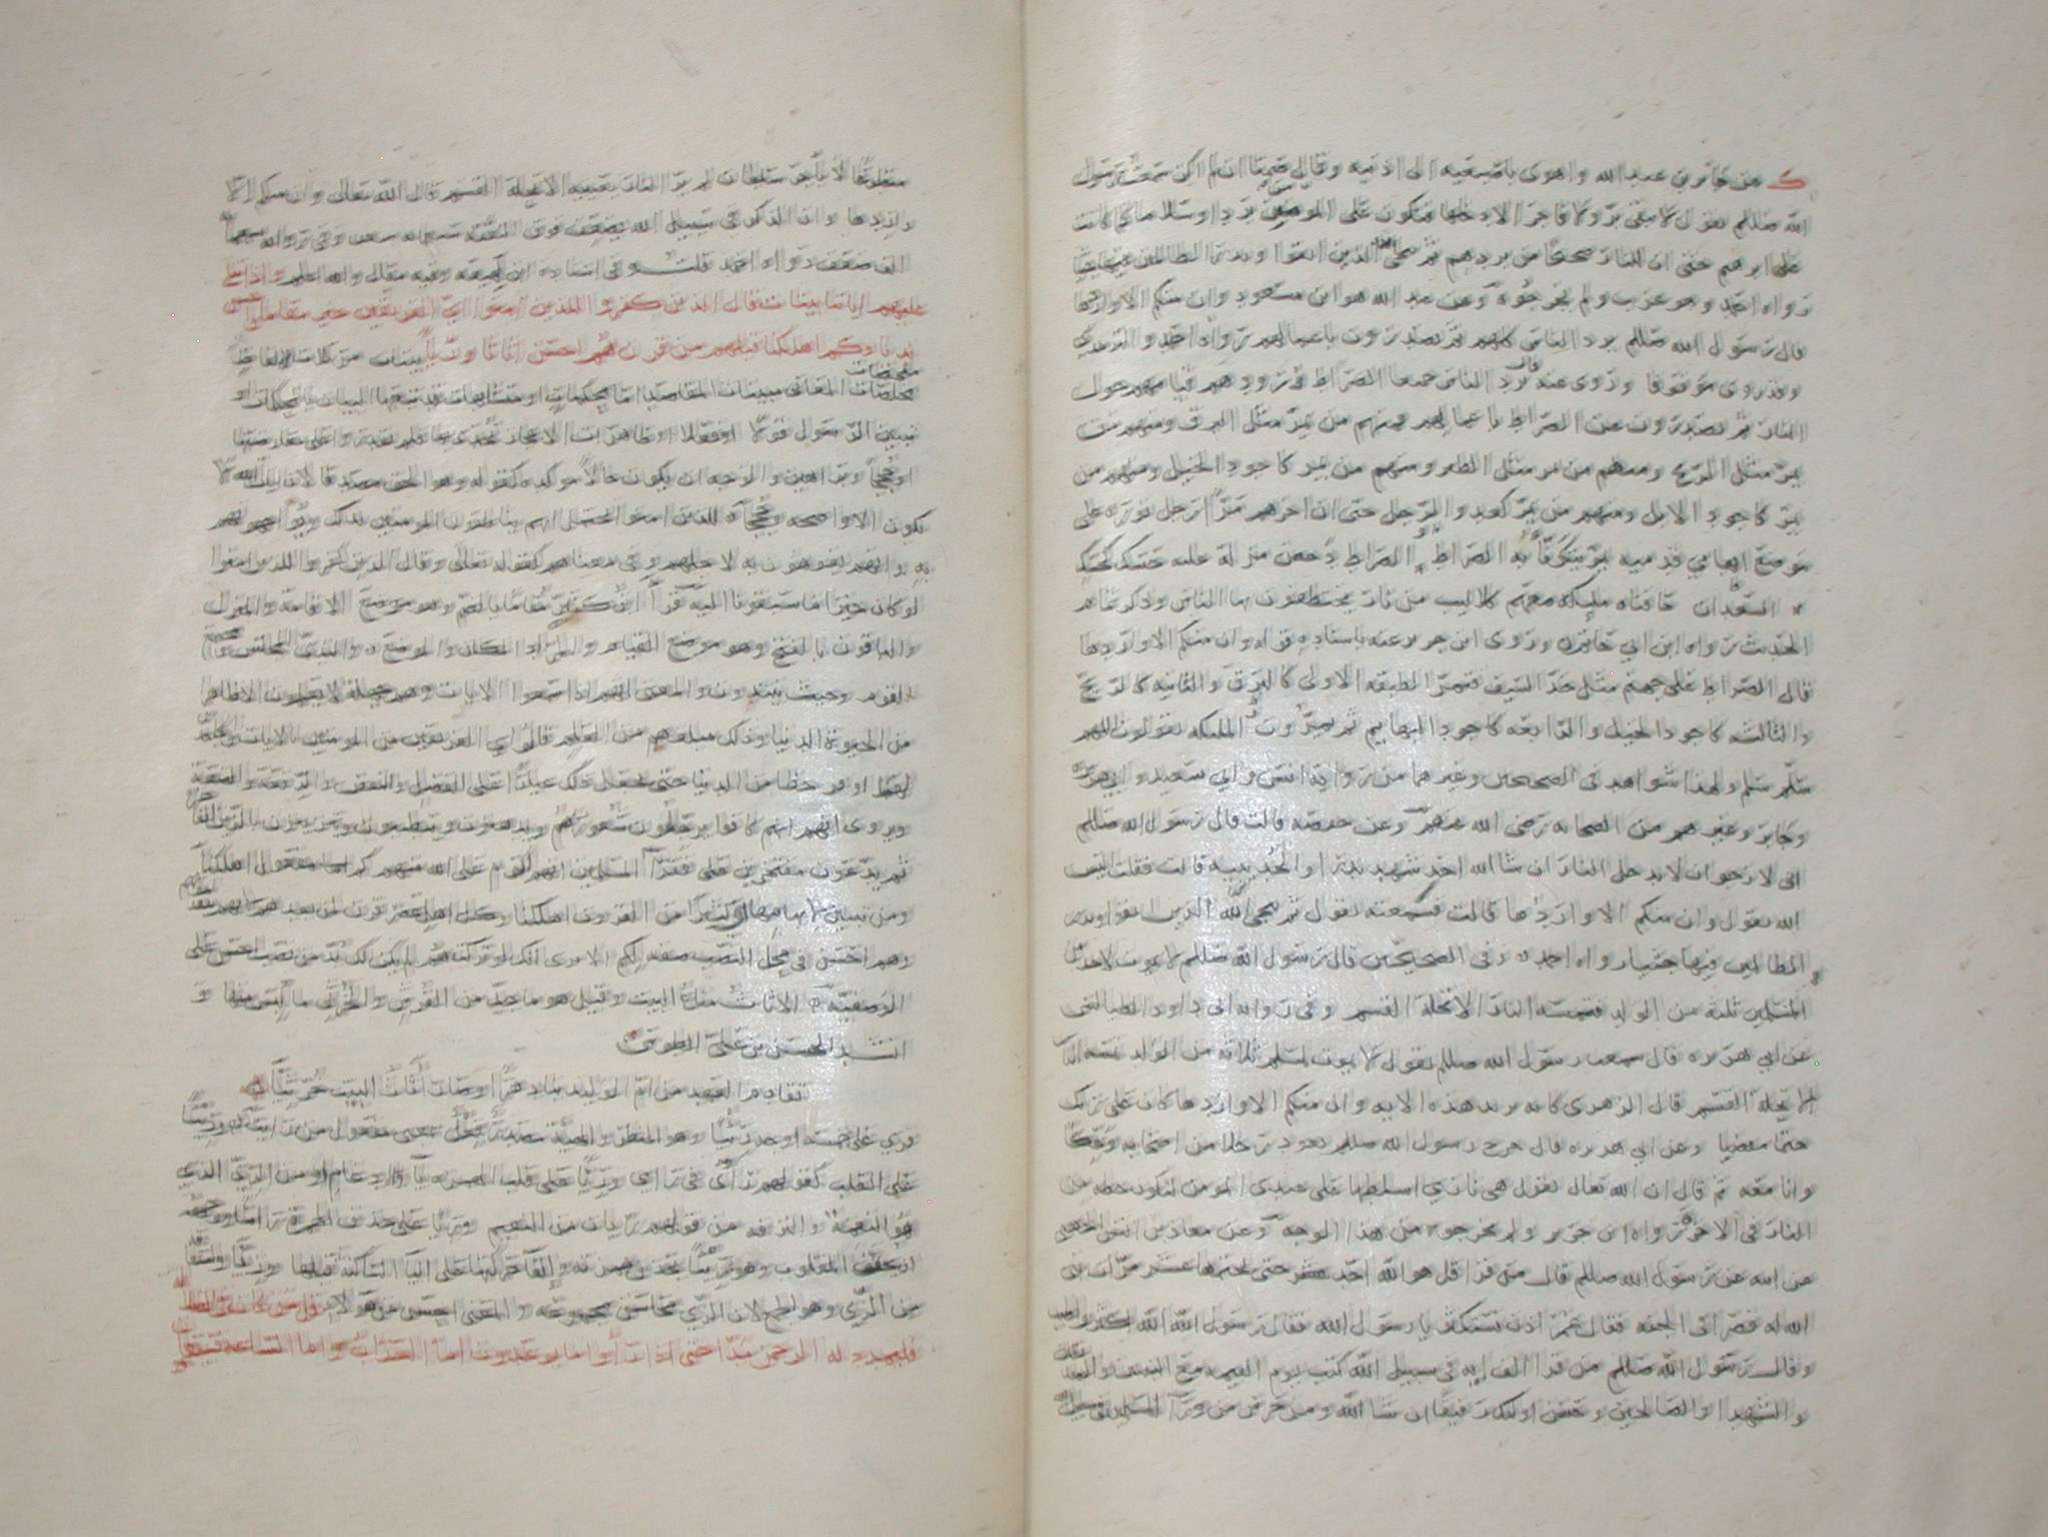 عن جابر بن عبد الله واهوى باصبعيه الى اذنيه وقال صمتا ان لم اكن سمعت رسول
الله صللم يقول لا يبقى بر ولا فاجر الا دخلها فتكون على المومنين بردا وسلاما كما كانت
على ابرهيم حتى ان للنار ضجيجا من بردهم ثم ينجي الله الذين اتقوا ويذر الظالمين فيها جثيا
رواه احمد وهو غريب ولم يخرجوه وعن عبد الله هو ابن مسعود وان منكم الا واردها
قال رسول الله صللم يرد الناس كلهم ثم يصدرون باعمالهم رواه احمد والترمذي
وقد روي موقوفا وروى عنه قال يرد الناس جميعا الصراط وورودهم قيامهم حول
النار ثم يصدرون عن الصراط باعمالهم فمنهم من يمر مثل البرق ومنهم من
يمر مثل الريح ومنهم من يمر مثل الطير ومنهم من يمر كاجود الخيل ومنهم من
يمر كاجود الابل ومنهم من يمر كعدو الرجل حتى ان اخرهم مرا رجل نوره على
موضع ابهامي قدميه يمر يتكفأ به الصراط والصراط دحض مزلة عليه حسك كحسك
السعدان حافتاه مليكة معهم كلاليب من نار يختطفون بها الناس وذكر تمام
الحديث رواه ابن ابي حاتم وروى ابن جرير عنه باسناده قوله وان منكم الا واردها
قال الصراط على جهنم مثل حد السيف فتمر الطبقة الاولى كالبرق والثانية كالريح
والثالثة كاجود الخيل والرابعة كاجود البهايم ثم يمرون والمليكة يقولون اللهم
سلم سلم ولهذا شواهد في الصحيحين وغيرهما من رواية انس وابي سعيد وابي هريرة
وجابر وغيرهم من الصحابه رضي الله عنهم وعن حفصة قالت قال رسول الله صللم
اني لارجو ان لا يدخل النار ان شا الله احد شهد بدرا والحديبية قالت فقلت اليس
الله يقول وان منكم الا واردها قالت فسمعته يقول ثم ينجي الله الذين اتقوا ويذر
الظالمين فيها جثيا رواه احمد وفي الصحيحين قال رسول الله صللم لا يموت لاحد من
المسلمين ثلثة من الولد فتمسه النار الا تحلة القسم وفي رواية ابي داود الطيالسي
عن ابي هريرة قال سمعت رسول الله صللم يقول لا يموت لمسلم ثلاثة من الولد تمسه النار
الا تحلة القسم قال الزهري كانه يريد هذه الاية وان منكم الا واردها كان على ربك
حتما مقضيا وعن ابي هريرة قال خرج رسول الله صللم يعود رجلا من اصحابه وعكا
وانا معه ثم قال ان الله تعالى يقول هي ناري اسلطها على عبدي المومن لتكون حظه من
النار في الاخرة رواه ابن جرير ولم يخرجوه من هذا الوجه وعن معاذ بن انس الجهني
عن الله عن رسول الله صللم قال من قرا قل هو الله احد عشر حتى يختمها عشر مرات بنى
الله له قصرا في الجنه فقال عمر اذن نستكثر يا رسول الله فقال رسول الله الله اكثر واطيب
وقال رسول الله صللم من قرا الف اية في سبيل الله كتب يوم القيمة مع النبيين والصديقين
والشهدا والصالحين وحسن اوليك رفيقا ان شا الله ومن حرس من ورا المسلمين في سبيل الله
متطوعا لا باجر سلطان لم ير النار بعينيه الا تحلة القسم قال الله تعالى وان منكم الا
واردها وان الذكر في سبيل الله يضعف فوق النفقة بسبعماية ضعف وفي رواية بسبعماية
الف ضعف رواه احمد قلت وفي اسناده ابن لهيعة وفيه مقال والله اعلم واذا تتلى
عليهم اياتنا بينات قال الذين كفروا للذين امنوا اي الفريقين خير مقاما واحسن
نديا وكم اهلكنا قبلهم من قرن هم احسن اثاثا وريا بينات مرتلات الالفاظ
ملخصات المعاني مبينات المقاصد اما محكمات او متشابهات قد تبعها البيان بالمحكمات او
تبيين الرسول قولا او فعلا او ظاهرات الاعجاز تحدي بها فلم يقدر على معارضتها
او حججا وبراهين والوجه ان يكون حالا موكدة كقوله وهو الحق مصدقا لان ايات الله لا
تكون الا واضحة وحججا للذين امنوا يحتمل انهم يناطقون المومنين بذلك ويواجهونهم
به وانهم يفوهون به لاجلهم وفي معناهم كقوله تعالى وقال الذين كفروا للذين امنوا
لو كان خيرا ما سبقونا اليه قرا ابن كثير مقاما بالضم وهو موضع الاقامة والمنزل
والباقون بالفتح وهو موضع القيام والمراد المكان والموضع والندي المجلس ومجتمع
القوم وحيث ينتدون والمعنى انهم اذا سمعوا الايات وهم جهلة لا يعلمون الا ظاهرا
من الحيوة الدنيا وذلك مبلغهم من العلم قالوا اي الفريقين من المومنين بالايات والجاحدين
لها اوفر حظا من الدنيا حتى يجعل ذلك عيارا على الفضل والنقص والرفعة والضعة
ويروى انهم كانوا يرجلون شعورهم ويدهنون ويتطيبون ويتزينون بالزين الفاخرة
ثم يدعون مفتخرين على فقرا المسلمين انهم اكرم على الله منهم كم مفعول اهلكنا
ومن تبيين لابهامها اي كثيرا من القرون اهلكنا وكل اهل عصر قرن لمن بعدهم لانهم يتقدمونهم
وهم احسن في محل النصب صفة لكم الا ترى انك لو تركت هم لم يكن لك بد من نصب احسن على
الوصفية الاثاث متاع البيت وقيل هو ما جد من الفرش والخرثي ما لبس منها و
انشد الحسن بن علي الطوسي
تقادم العهد من ام الوليد بنا دهرا وصار اثاث البيت خرثيا
قري على خمسة اوجه رئيا وهو المنظر والهيئة فعل بمعنى مفعول من رايت وريئا
على القلب كقولهم راء في راى وريا على قلب الهمزة يا والادغام او من الري الذي
هو النعمة والترفه من قولهم ريان من النعيم وريا على حذف الهمزة راسا ووجهه
ان يخفف المقلوب وهو ريئا بحذف همزته والقا حركتها على اليا الساكنة قبلها وزيا واشتقاقه
من الزي وهو الجمع لان الزي محاسن مجموعة والمعنى احسن من هولا قل من كان في الضلالة
فليمدد له الرحمن مدا حتى اذا راوا ما يوعدون اما العذاب واما الساعة فسيعلمون